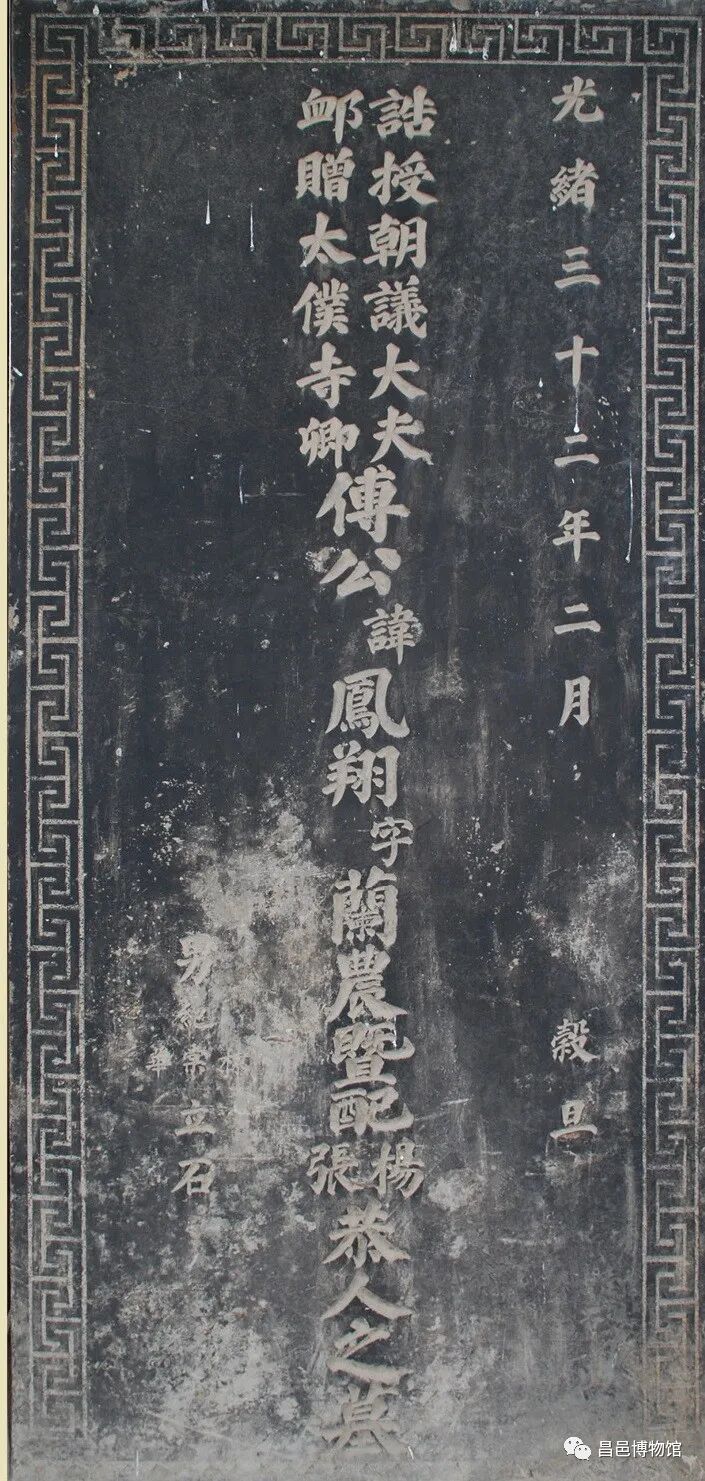 光緒三十二年二月 穀旦
誥授朝議大夫
卹贈太僕寺卿
傅公諱鳳翔字蘭農暨配
楊
張
恭人之墓
男
崇
華
立石
昌邑博物馆